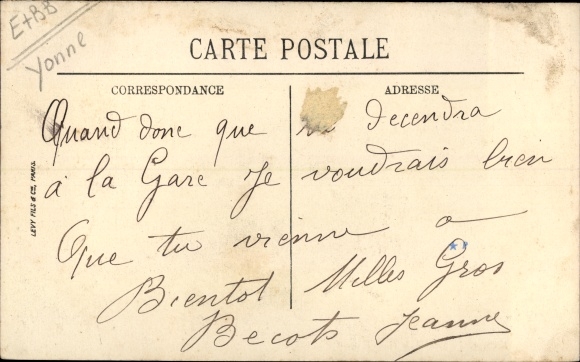 E+BB
Yonne
CARTE POSTALE
CORRESPONDANCE
ADRESSE
Quand donc que Decendra
à la Gare Je voudrais bien
Que tu vienne a
Bientot Milles Gros
Becots Jeanne
LEVY FILS & Cie, PARIS.